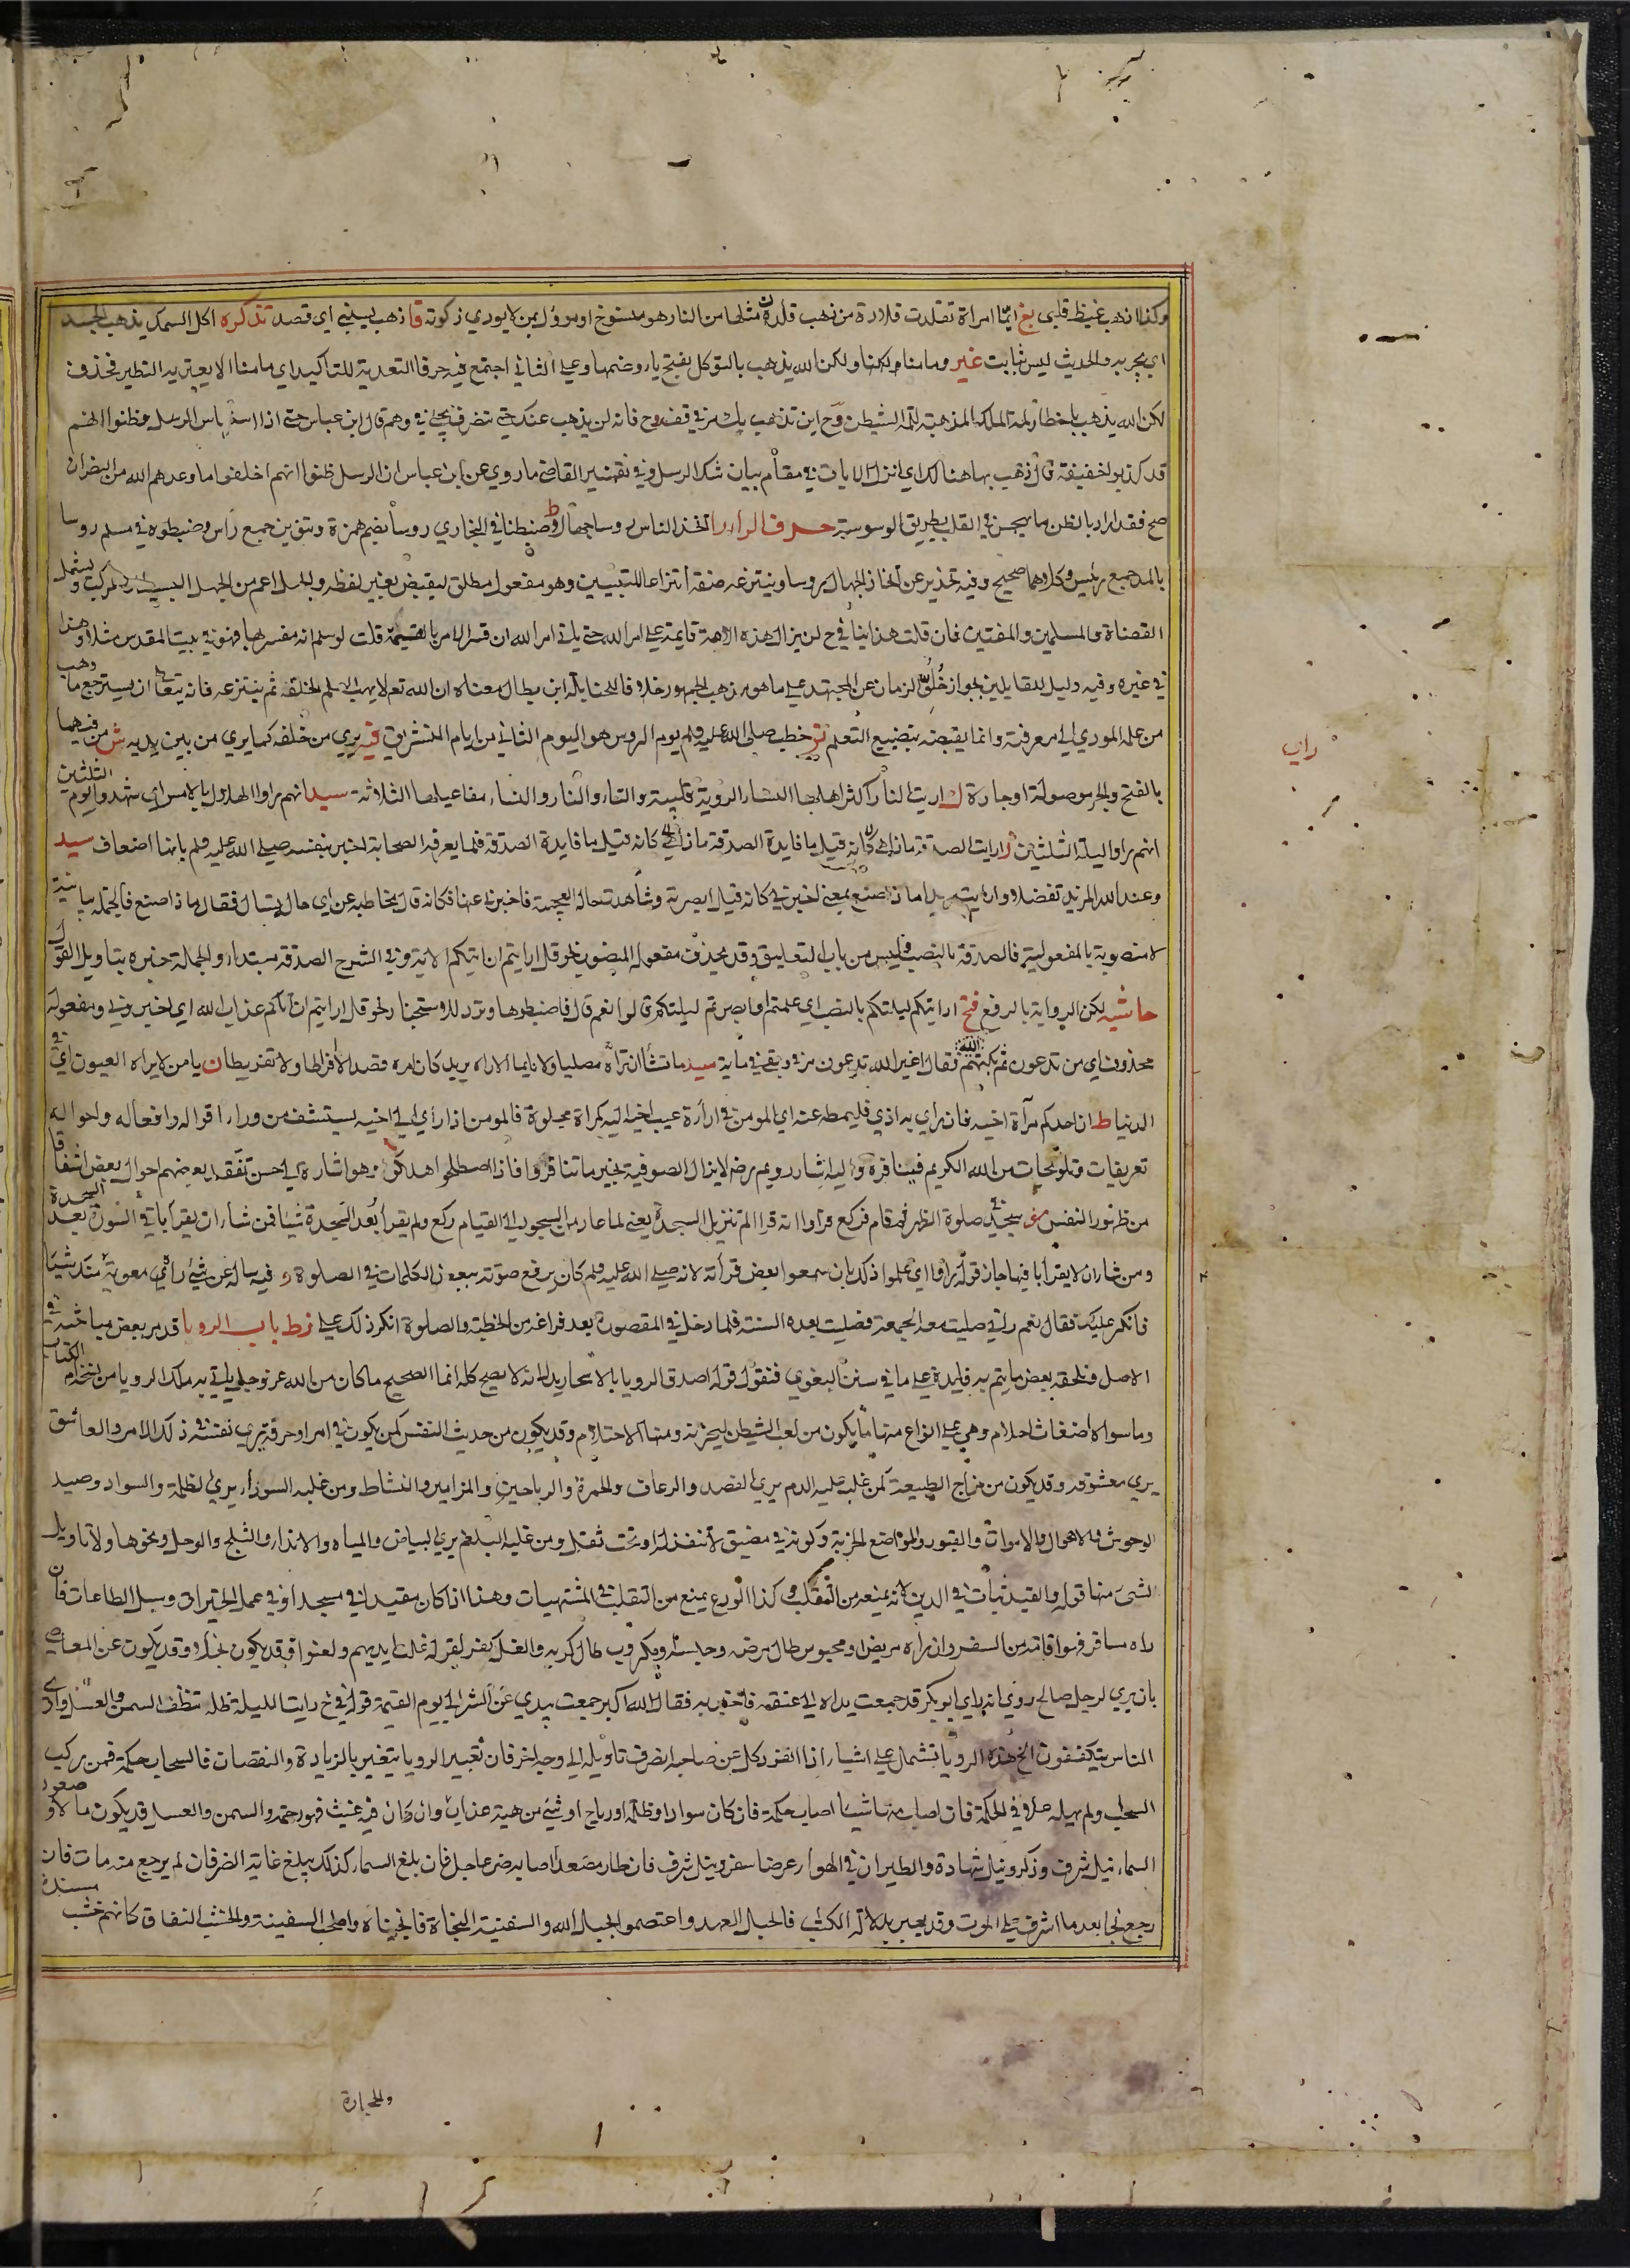 وكذا اذهب غيظ قلبي نغ ايما امراة تقلدت قلادة من ذهب قلدت مثلها من النار هو منسوخ او مؤول بمن لا يودي زكوته قا ذهب ليغني اي قصد تذكره اكل السمك يذهب الجسد
اي يجربه والحديث ليس بثابت غير وما منا ولكنا ولكن الله يذهب بالتوكل بفتح ياء وضمها وعلى الثاني اجتمع فيه حرفا التعدية للتاكيد اي ما منا الا يعتريه التطير فحذف
لكن الله يذهب با خطار لمة الملك المذهبة للمة الشيطن وح اين تذهب بك في قف وح فانه لن يذهب عنك حتى تنصرف في وهم قال ابن عباس حتى اذا استياس الرسل وظنوا انهم
قد كذبوا خفيفة قال ذهب بها هنالك اي انزل الايات في مقام بيان شك الرسل وفي تفسير القاضي ما روي عن ابن عباس ان الرسل ظنوا انهم اخلفوا ما وعدهم الله من النصر ان
صح فقد اراد بالظن ما يهجس في القلب بطريق الوسوسة حرف الراء را اتخذ الناس روسا جهالا وضبطنا في البخاري روسا بضم همزة وتنوين جمع راس وضبطوه في مسلم روسا
بالمد جمع رئيس وكلاهما صحيح وفيه تحذير عن اتخاذ الجهال روسا وينتزعه صفة انتزاعا للتبيين وهو مفعول مطلق ليقبض بغير لفظه والجهل اعم من الجهل البسيط والمركب ويشمل
القضاة والمسلمين والمفتين فان قلت هذا ينافي ح لن يزال هذه الامة قايمة على امر الله حتى ياتي امر الله ان فسر الامر بالقيمة قلت لو سلم انه مفسر بها فهو في بيت المقدس مثلا وهذا
في غيره وفيه دليل للقايلين بجواز خلو الزمان عن المجتهد على ما هو مذهب الجمهور خلافا للحنابلة ابن بطال معناه ان الله تع لا يهب العلم لخلقه ثم ينتزعه فانه يتعالى ان يسترجع ما وهب
من علمه المودي الى معرفته وانما يقبضه بتضييع التعلم نز خطب صلى الله عليه وسلم يوم الروس هو اليوم الثاني من ايام التشريق فيه يرى من خلفه كما يرى من بين يديه ش من فيهما
بالفتح والجر موصولة او جارة ك اريت النار اكثر اهلها النساء الروية قلبية والتاء والنار والنساء مفاعيلها الثلاثة سيد انهم راوا الهلال بالامس اي شهدوا يوم الثلثين
انهم راوا ليلة الثلثين را ارايت الصدقة ماذا هي كانه قيل ما فايدة الصدقة ماذا هي كانه قيل ما فايدة الصدقة فلما يعرفه الصحابة اخبر بنفسه صلى الله عليه وسلم بانها اضعاف سيد
وعند الله المزيد تفضلا وارايت ماذا اصنع بمعنى اخبرني كانه قيل ابصرته وشاهدت حاله العجيبة فاخبرني عنها فكانه قال مخاطبه عن اي حال يسال فقال ماذا اصنع فالجملة بيانية
لا منصوبة بالمفعولية فالصدقة بالنصب فليس من باب التعليق وقد يحذف مفعوله المنصوب نحو قل ارايتم ان اتيكم الاية وفي الشرح الصدقة مبتداء والجملة خبره بتاويل القول
حاشيه لكن الرواية بالرفع فتح ارايتكم ليلتكم بالنصب اي علمتم او ابصرتم ليلتكم قالوا نعم قال فاضبطوها وترد للاستخبار نحو قل ارايتم ان اتاكم عذاب الله اي اخبروني ومفعوله
محذوف اي من تدعون ثم بكتهم الله فقال اغير الله تدعون سيد ما تشاء ان تراه مصليا ولا نايما الا راه يريد كان امره قصدا لا افراطا ولا تفريطا ن يا من لا يراه العيون اي في
الدنيا ط ان احدكم مرآة اخيه فان راي به اذى فليمطه عنه اي المومن في اراءة عيب اخيه اليه كمرآة مجلوة فالمومن اذا راي الى اخيه يستشف من وراء اقواله وافعاله واحواله
تعريفات وتلويحات من الله الكريم فينافره واليه اشار رويم رضه لا يزال الصوفية بخير ما تنافروا فاذا اصطلحوا هلكوا وهو اشارة الى حسن تفقد بعضهم احوال بعض اشفاقا
من ظهور النفس مغ سجد في صلوة الظهر ثم قام فركع فراوا انه قرا الم تنزيل السجدة يعني لما عاد من السجود الى القيام ركع ولم يقرأ بعد السجدة شيئا فمن شاء ان يقرأ باقي السورة بعد السجدة
ومن شاء ان لا يقرأ باقيها جاز قوله راوا اي علموا ذلك بان سمعوا بعض قراته لانه صلى الله عليه وسلم كان يرفع صوته ببعض الكلمات في الصلوة وفيه ساله عن شيء راه في معوية منك شيئا
فانكر عليك فقال نعم راني صليت معه الجمعة فصليت بعده السنة فلما دخل في المقصورة بعد فراغه من الخطبة والصلوة انكر ذلك علي نرط باب الرويا قد مر بعض مباحثه في
الاصل ونلحقه بعض ما يتم به فايدة على ما في سنن البغوي فنقول قوله اصدق الرويا بالاسحار يدل انه لا يصح كله انما الصحيح ما كان من الله عز وجل ياتي به ملك الرويا من نسخة ام الكتاب
وما سواه اضغاث احلام وهي على انواع منها ما يكون من لعب الشيطن ليحزنه ومنها الاحتلام وقد يكون من حديث النفس كمن يكون في امر او حرفة يرى نفسه في ذلك الامر والعاشق
يرى معشوقه وقد يكون من مزاج الطبيعة كمن غلب عليه الدم يرى الفصد والرعاف والحمرة والرياحين والمزامير والنشاط ومن غلبه السوداء يرى الظلمة والسواد وصيد
الوحوش والاهوال والاموات والقبور والمواضع الخربة وكونه في مضيق لا منفذ له او تحت ثقل ومن غلبه البلغم يرى البياض والمياه والانداء والثلج والوحل ونحوها ولا تاويل
لشيء منها قوله والقيد ثبات في الدين لانه يمنعه من التقلب وكذا الورع يمنع من التقلب في المشتهيات وهذا اذا كان مقيدا في مسجد او في عمل الخيرات وسبل الطاعات فان
راه مسافر فهو اقامته من السفر وان راه مريض او محبوس طال مرضه وحبسه او مكروب طال كربه والغل كفر لقوله غلت ايديهم ولعنوا وقد يكون بخلا وقد يكون عن المعاصي
بان يرى لرجل صالح روي انه راي ابو بكر قد جمعت يداه الى عنقه فاخبر به فقال الله اكبر جمعت يدي عن الشر الى يوم القيمة قوله في ح رايت الليلة ظلة تنطف السمن والعسل وارى
الناس يتكففون الخ هذه الرويا تشمل على اشياء اذا انفرد كل عن صاحبه انصرف تاويله الى وجه اخر فان تعبير الرويا يتغير بالزيادة والنقصان فالسحاب حكمة فمن ركب
السحاب ولم يهبله علا في الحكمة فان اصاب منها شيئا اصاب حكمة فان كان سوادا وظلمة او رياح او شيء من هيئة عذاب وان كان فيه غيث فهو رحمة والسمن والعسل قد يكون مالا وصعود
السماء نيل شرف وذكر ونيل شهادة والطيران في الهواء عرضا سفر ونيل شرف فان طار مصعدا اصابه ضر عاجل فان بلغ السماء كذلك يبلغ غاية الضر فان لم يرجع منه مات فان
رجع نجا بعد ما اشرف على الموت وقد يعبر بدلالة الكتاب فالحبل العهد واعتصموا بحبل الله والسفينة النجاة فانجيناه واصحاب السفينة والخشب النفاق كانهم خشب مسندة
والحجارة
راي